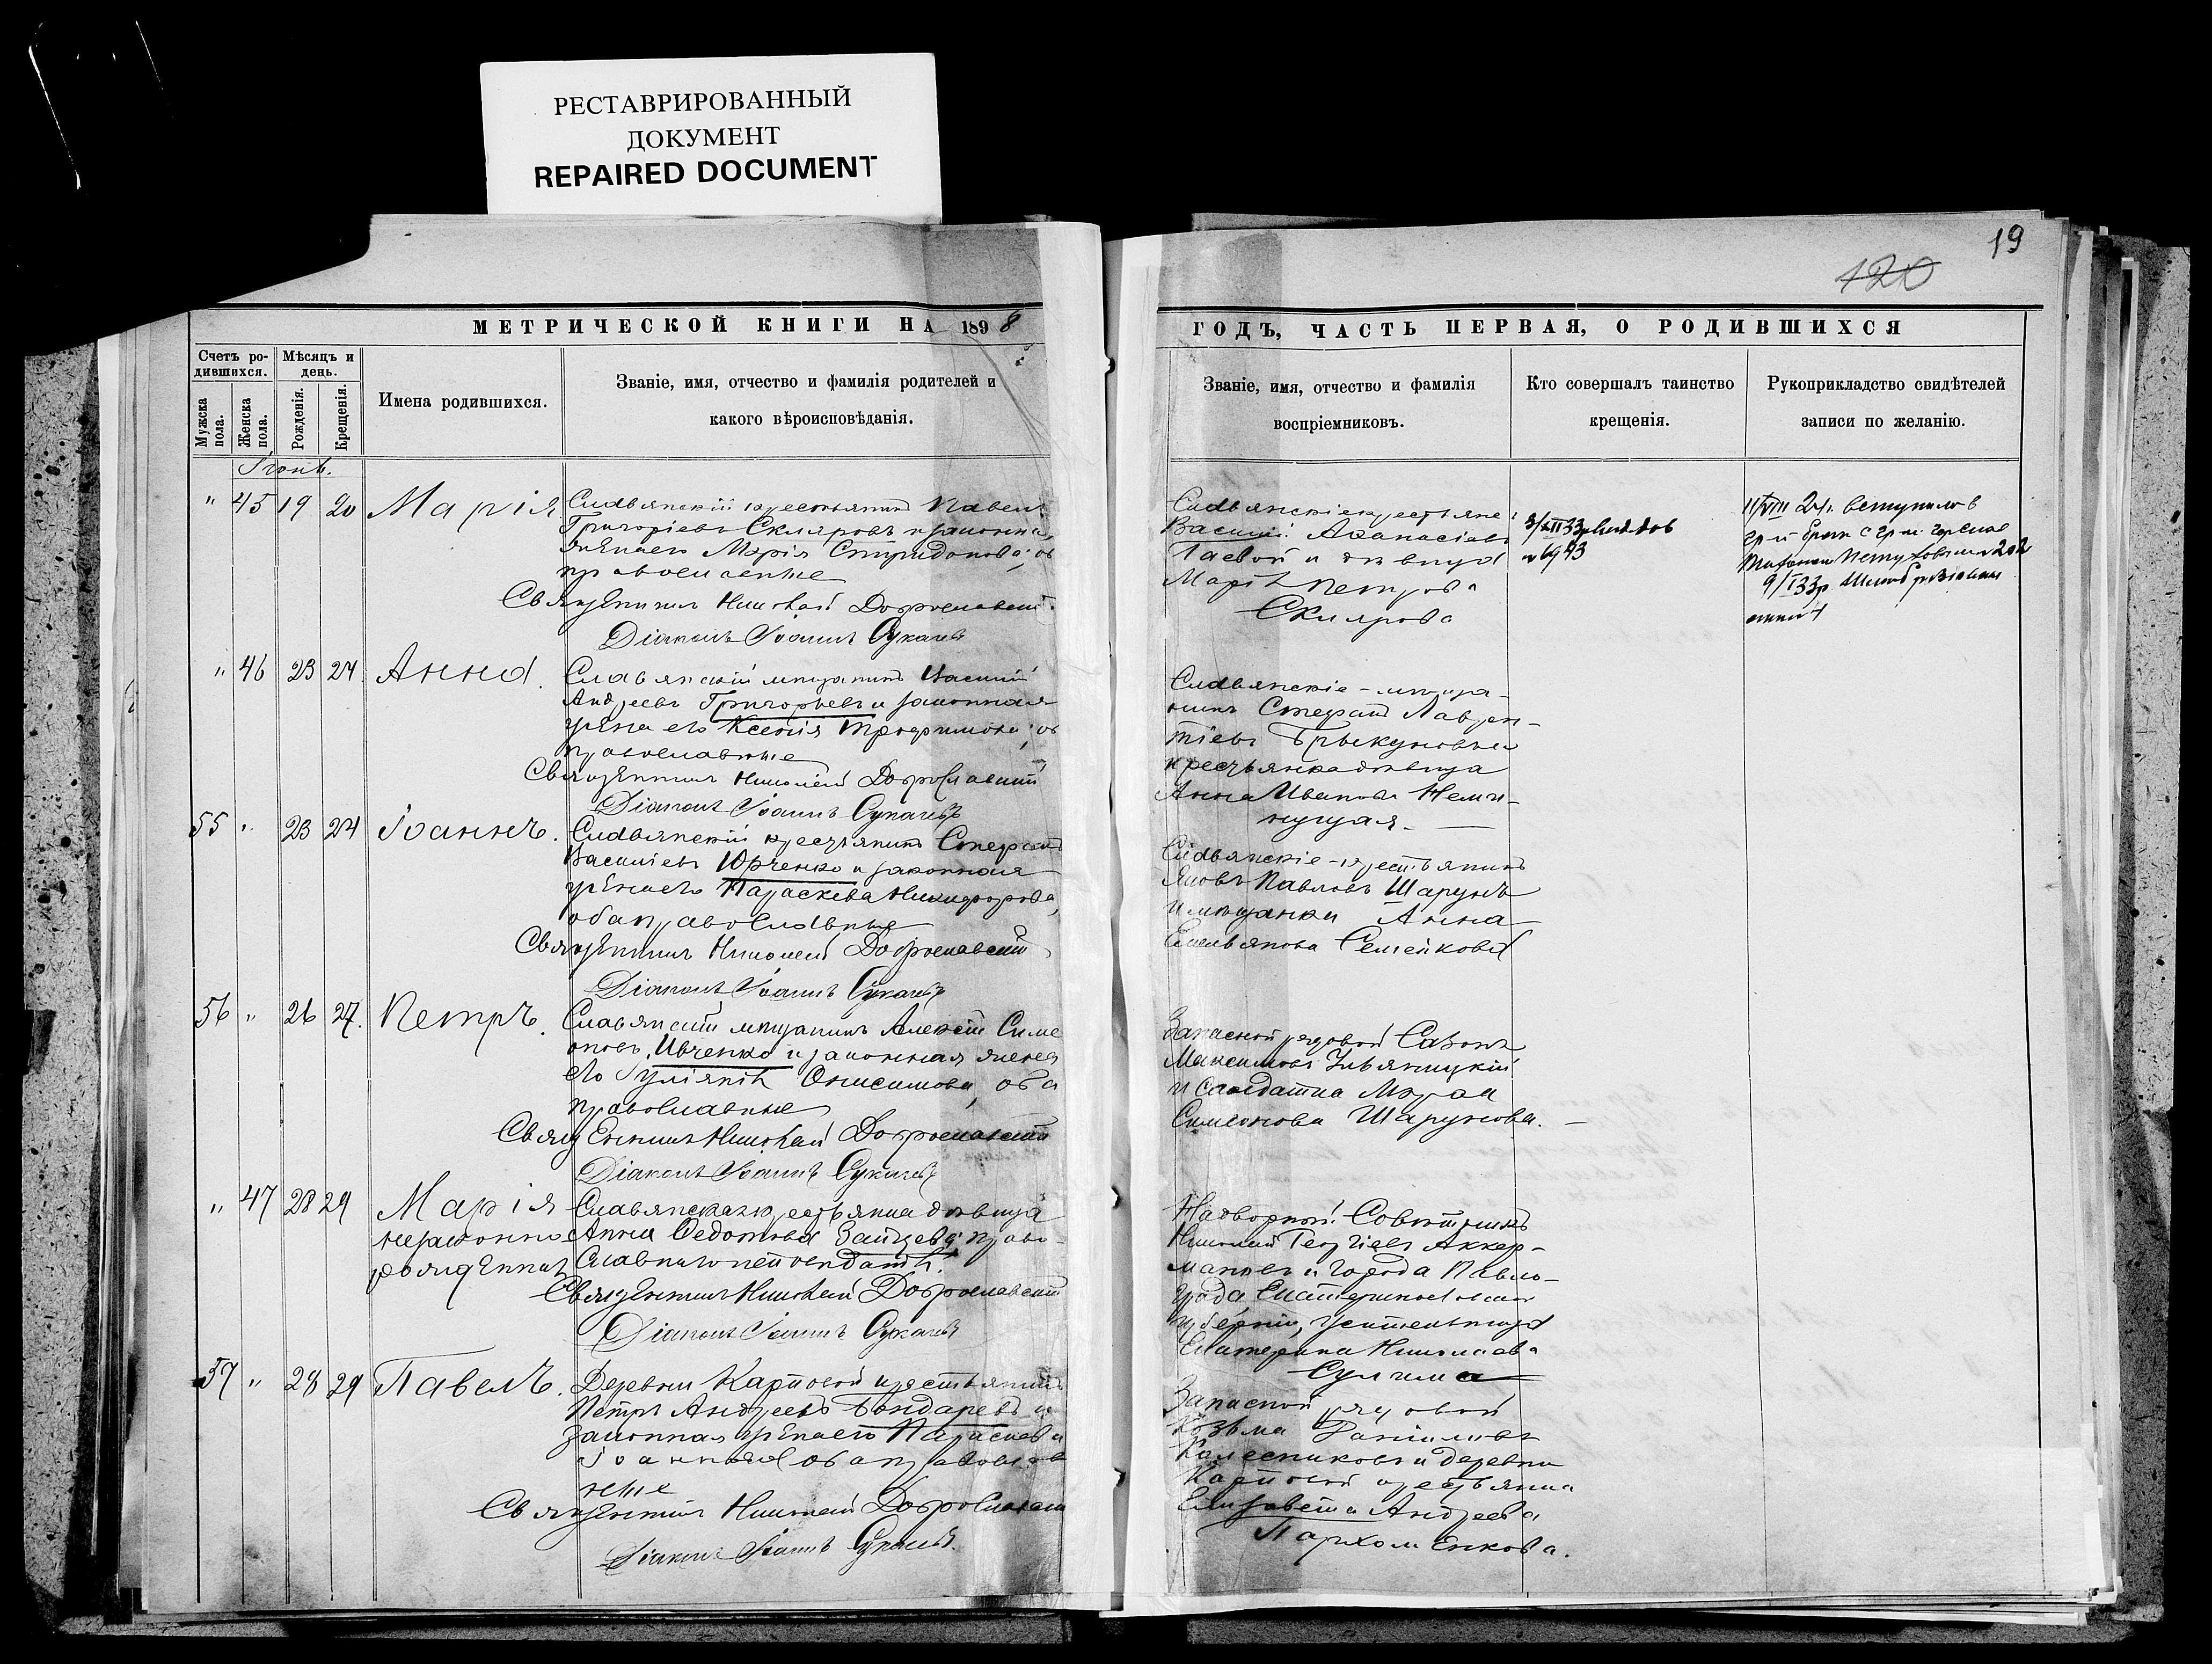 РЕСТАВРИРОВАННЫЙ
ДОКУМЕНТ
REPAIRED DOCUMENT
МЕТРИЧЕСКОЙ КНИГИ НА 1898
Счетъ ро-
дившихся.
Мѣсяцъ и
день.
Мужска
пола.
Женска
пола.
Рожденія.
Крещенія.
Имена родившихся.
Званіе, имя, отчество и фамилія родителей и
какого вѣроисповѣданія.
Іюнь.
" 45 19 20 Марія Славянскій крестьянинъ Павелъ
Григоріевъ Скляровъ и законная
жена его Марія Спиридонова, об
православные
Священникъ Николай Доброславскій
Діаконъ Іоаннъ Сукачевъ
" 46 23 24 Анна. Славянскій мѣщанинъ Василій
Андреевъ Григорьевъ и законная
жена его Ксенія Трофимова; об
православные
Священникъ Николай Доброславскій
Діаконъ Іоаннъ Сукачевъ
55 " 23 24 Іоаннъ. Славянскій крестьянинъ Стефанъ
Василіевъ Юрченко и законная
жена его Параскева Никифорова,
оба православные
Священникъ Николай Доброславскій
Діаконъ Іоаннъ Сукачевъ
56 " 26 27. Петръ. Славянскій мѣщанинъ Алексій Симе
оновъ Ивченко и законная жена
его Іуліанія Онисимова, оба
православные
Священникъ Николай Доброславскій
Діаконъ Іоаннъ Сукачевъ
" 47 28 29 Марія Славянская крестьянка дѣвица
незаконно Анна Федотова Зайцева право-
рожденная славнаго
Священникъ Николай Доброславскій
Діаконъ Іоаннъ Сукачевъ
57 " 28 29 Павелъ. Деревни Карповой крестьянинъ
Петръ Андреевъ Бондаревъ и
законная жена его Параскева
Іоаннова оба православ
ные
Священникъ Николай Доброславскій
Діаконъ Іоаннъ Сукачевъ.
19
120
ГОДЪ, ЧАСТЬ ПЕРВАЯ, О РОДИВШИХСЯ
Званіе, имя, отчество и фамилія
воспріемниковъ.
Кто совершалъ таинство
крещенія.
Рукоприкладство свидѣтелей
записи по желанію.
Славянскіе крестьяне:
Василій Аѳанасіевъ
и дѣвица
Марія Петрова
Склярова
11/VIII 24г. вступила в
9/I 33г.
Славянскіе - мѣща-
нинъ Стефанъ Лаврен-
тіевъ и
крестьянка дѣвица
Анна Иванова Неми-
нущая. —
Славянскіе - крестьянинъ
Яковъ Павловъ Шарунъ
и мѣщанка Анна
Емельянова Семейкова
Запасной рядовой Сазонъ
Максимовъ Ульяницкій
и солдатка
Симеонова Шарунова. —
Надворный Совѣтникъ
Николай Георгіевъ Аккер-
манъ и города Павло-
града, Екатеринославской
губерніи, учительница
Екатерина Николаева
Сулима
Запасной рядовой
Козьма Даніиловъ
Колесниковъ и деревни
Карповой крестьянка
Елизавета Андреева
Пархоменкова.